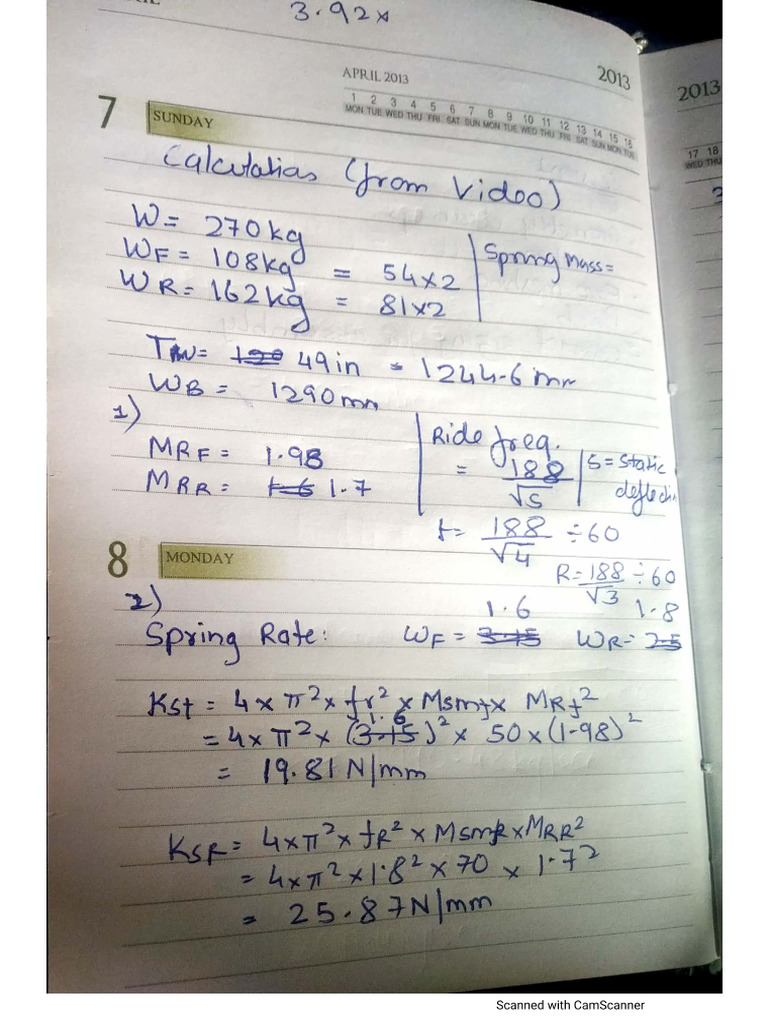 3.92x
APRIL 2013
2013
2013
1 2 3 4 5 6 7 8 9 10 11 12 13 14 15 16
MON TUE WED THU FRI SAT SUN MON TUE WED THU FRI SAT SUN MON TUE
17 18
WED THU
7 SUNDAY
Calculatias (from Vidoo)
W = 270kg
WF = 108kg = 54x2
WR = 162kg = 81x2
Spring Mass =
TW = 120 49in = 1244.6 mm
WB = 1290mm
1)
MRF = 1.98
MRR = 1.6 1.7
Ride freq.
= 188/√S
S = Static
deflecti
f = 188/√4 ÷60
R = 188/√3 ÷60
8 MONDAY
2)
1.6 1.8
Spring Rate: WF = 3.15 WR = 2.5
Ksf = 4 x π² x fr² x Msmf x MRf²
1.6
= 4 x π² x (3.15)² x 50 x (1.98)²
= 19.81 N/mm
KSR = 4 x π² x fR² x MsmR x MRR²
= 4 x π² x 1.8² x 70 x 1.7²
= 25.87N/mm
Scanned with CamScanner